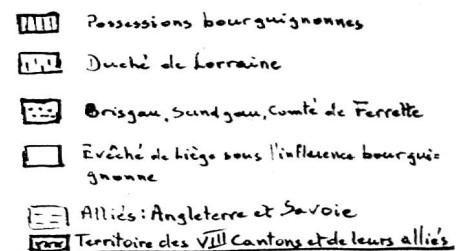 Possessions bourguignonnes
Duché de Lorraine
Brisgau, Sundgau, Comté de Ferrette
Evêché de Liège sous l'influence bourgui-
gnonne
Alliés: Angleterre et Savoie
Territoire des VIII Cantons et de leurs alliés